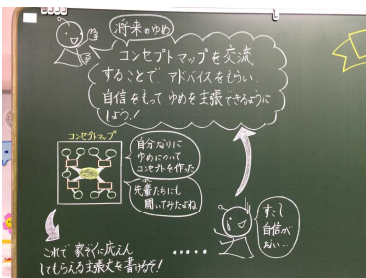 将来のゆめ
コンセプトマップを交流
することで アドバイスをもらい、
自信をもって ゆめを主張できるように
しよう!
コンセプトマップ
自分なりに
ゆめについて
コンセプトを作った
先輩たちにも
聞いてみたよね
すこし
自信が
ない…
これで 家ぞくに応えん
してもらえる主張文を書けるぞ!
‥‥‥